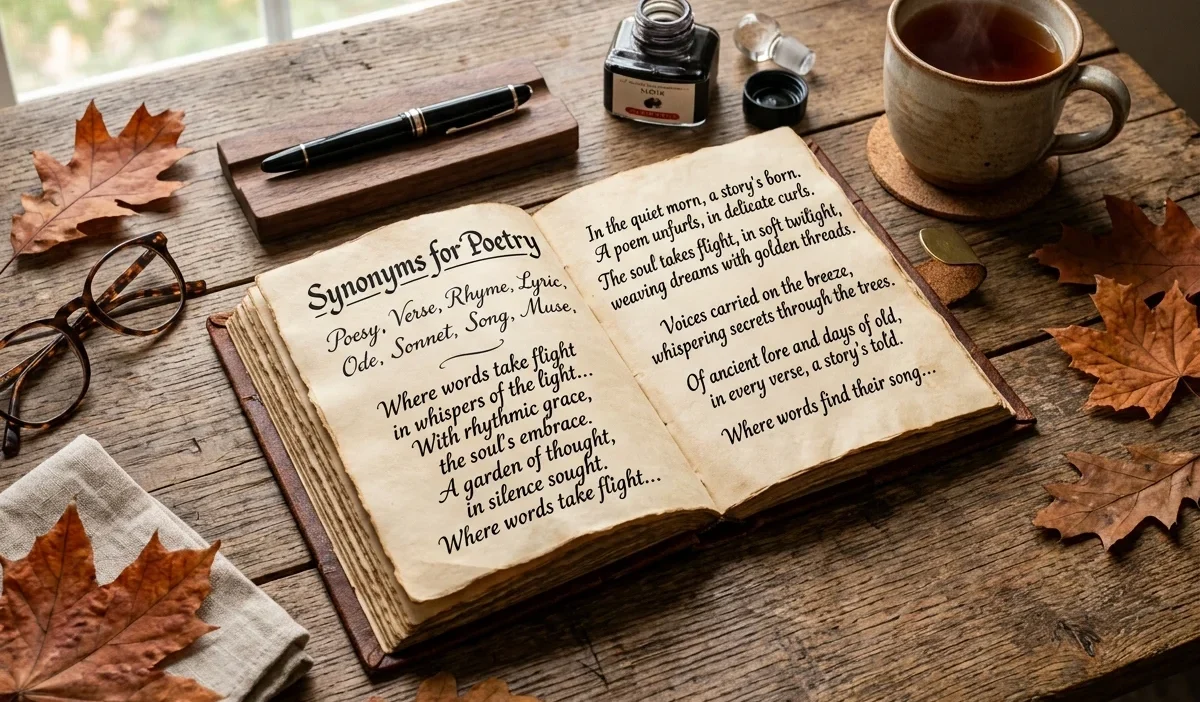 Synonyms for Poetry
Poesy, Verse, Rhyme, Lyric,
Ode, Sonnet, Song, Muse,
Where words take flight
in whispers of the light...
With rhythmic grace,
the soul's embrace.
A garden of thought,
in silence sought.
Where words take flight...
In the quiet morn, a story's born.
A poem unfurls, in delicate curls.
The soul takes flight, in soft twilight,
weaving dreams with golden threads.
Voices carried on the breeze,
whispering secrets through the trees.
Of ancient lore and days of old,
in every verse, a story's told.
Where words find their song...